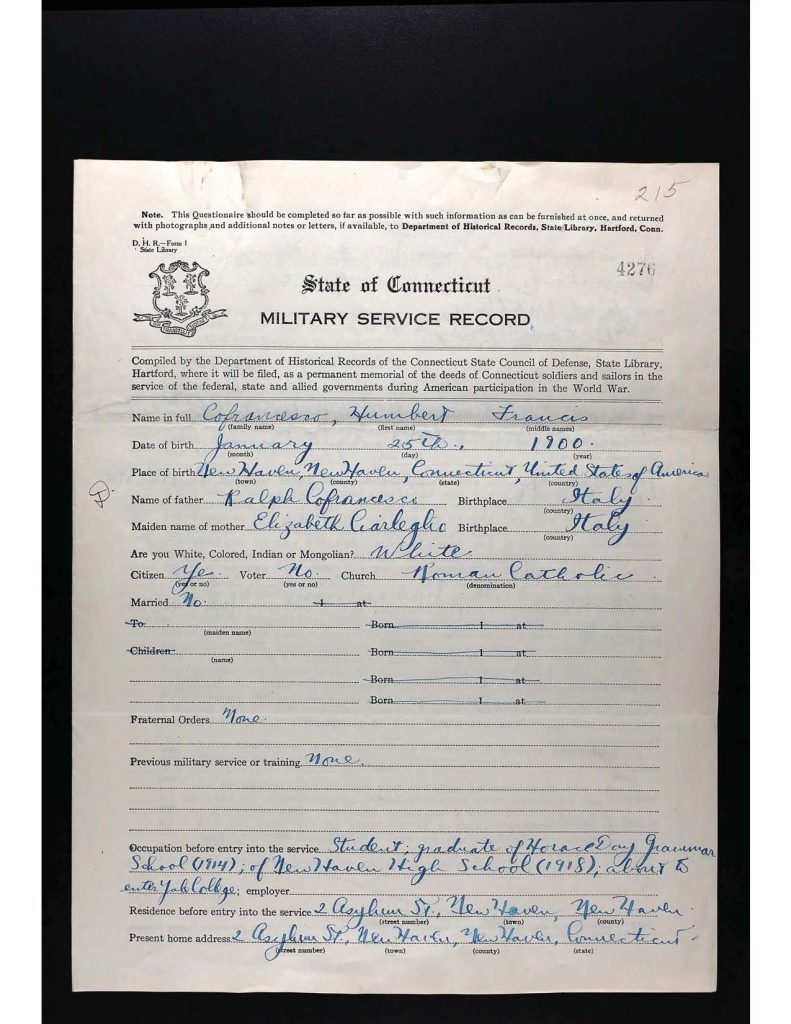 215
Note. This Questionaire should be completed so far as possible with such information as can be furnished at once, and returned
with photographs and additional notes or letters, if available, to Department of Historical Records, State Library, Hartford, Conn.
D. H. R.—Form 1
State Library
4276
State of Connecticut
MILITARY SERVICE RECORD
Compiled by the Department of Historical Records of the Connecticut State Council of Defense, State Library,
Hartford, where it will be filed, as a permanent memorial of the deeds of Connecticut soldiers and sailors in the
service of the federal, state and allied governments during American participation in the World War.
Name in full Cofrancesco, Humbert Francis
(family name) (first name) (middle names)
Date of birth January 25th, 1900.
(month) (day) (year)
Place of birth New Haven, New Haven, Connecticut, United States of America
(town) (county) (state) (country)
Name of father Ralph Cofrancesco Birthplace Italy
(country)
Maiden name of mother Elizabeth Birthplace Italy
(country)
Are you White, Colored, Indian or Mongolian? White
Citizen Yes Voter No. Church Roman Catholic
(yes or no) (yes or no) (denomination)
Married No. 1 at
To Born 1 at
(maiden name)
Children Born 1 at
(name)
Born 1 at
Born 1 at
Fraternal Orders None.
Previous military service or training None.
Occupation before entry into the service Student; graduate of Horace Day Grammar
School (1914); of New Haven High School (1918), about to
enter Yale College; employer
Residence before entry into the service 2 Asylum St., New Haven, New Haven
(street number) (town) (county)
Present home address 2 Asylum St., New Haven, New Haven, Connecticut
(street number) (town) (county) (state)